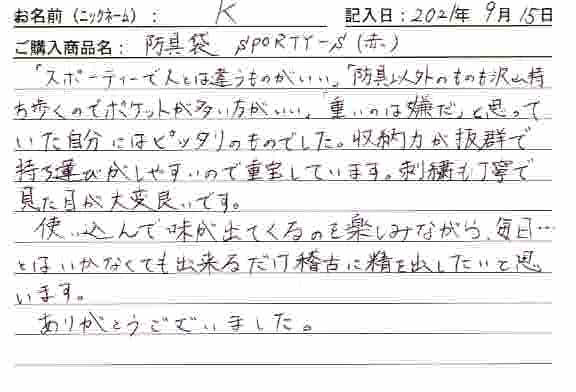 お名前（ニックネーム）： K 記入日：2021年 9月 15日
ご購入商品名： 防具袋 SPORTY-S (赤)
「スポーティーで人とは違うものがいい」「防具以外のものも沢山持
ち歩くのでポケットが多い方がいい」「重いのは嫌だ」と思って
いた自分にはピッタリのものでした。収納力が抜群で
持ち運びがしやすいので重宝しています。刺繍も丁寧で
見た目が大変良いです。
使い込んで味が出てくるのを楽しみながら、毎日…
とはいかなくても出来るだけ稽古に精を出したいと思
います。
ありがとうございました。